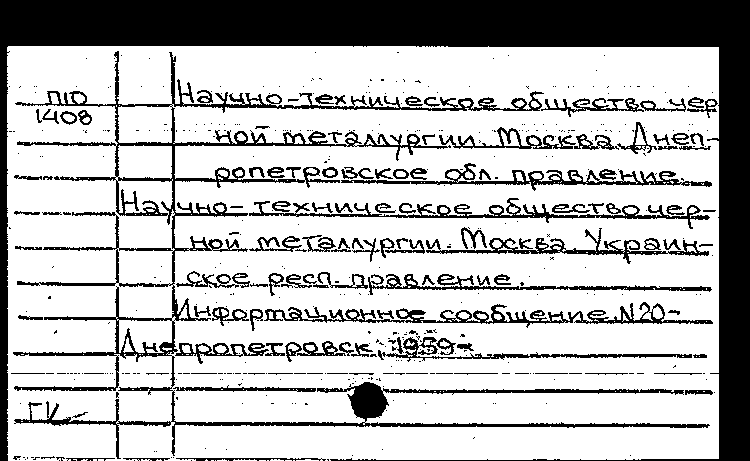 П10
1408
Научно-техническое общество чер
ной металлургии. Москва. Днеп-
ропетровское обл. правление.
Научно-техническое общество чер-
ной металлургии. Москва. Украин-
ское респ. правление.
Информационное сообщение. N20-
Днепропетровск, 1959-
ГК